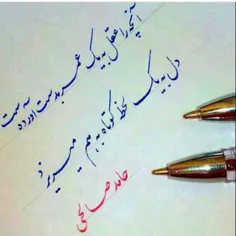 آنچه را عقل به یک عمر بدست آورده ست
دل به یک لحظه کوتاه بهم میریزد
حامد صالحی